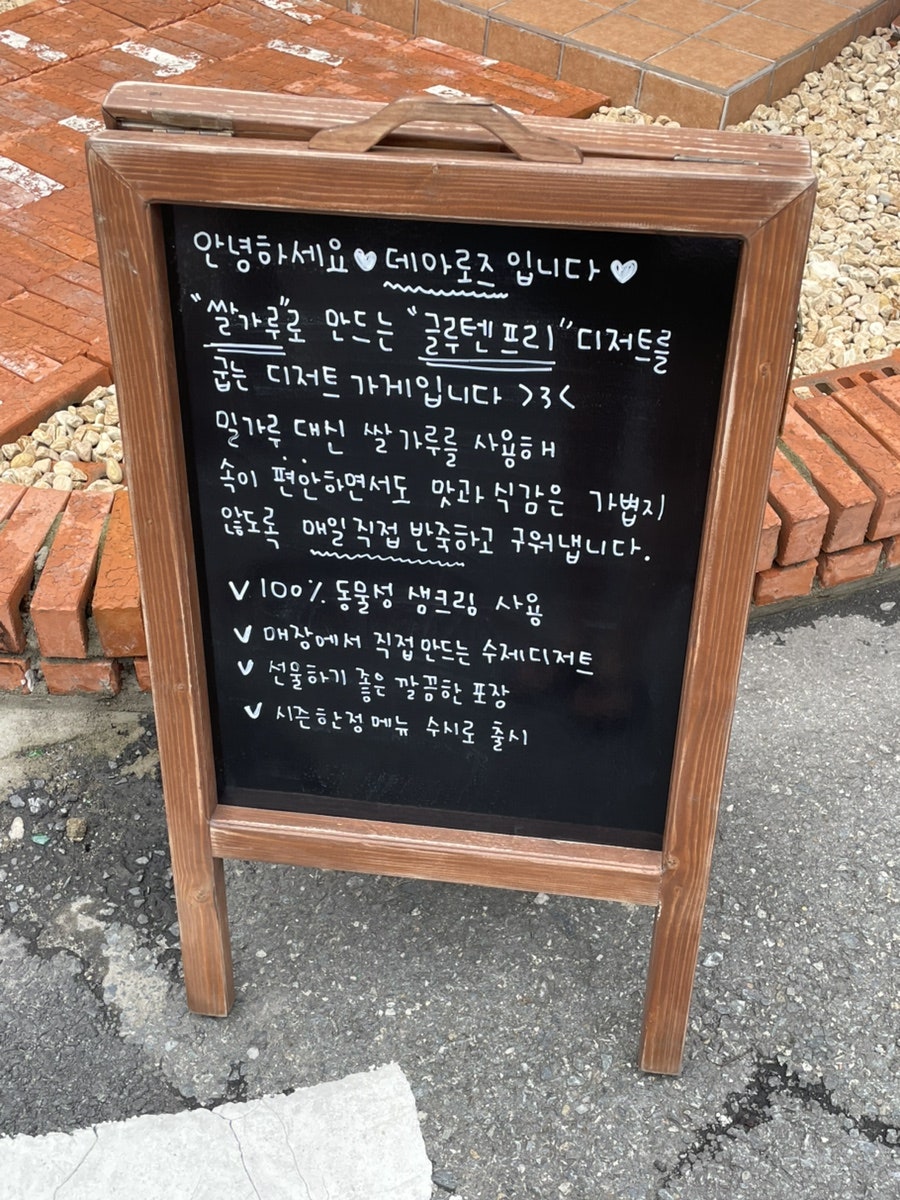 안녕하세요♥데아로즈 입니다♥
"쌀가루"로 만드는 "글루텐 프리" 디저트를
굽는 디저트 가게입니다 >3<
밀가루 대신 쌀가루를 사용해
속이 편안하면서도 맛과 식감은 가볍지
않도록 매일 직접 반죽하고 구워냅니다.
✓ 100% 동물성 생크림 사용
✓ 매장에서 직접 만드는 수제디저트
✓ 선물하기 좋은 깔끔한 포장
✓ 시즌한정메뉴 수시로 출시